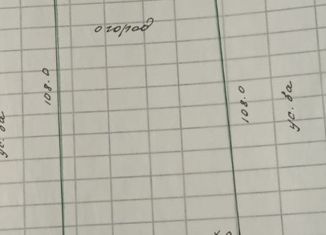 огород
108.0
108.0
ус. ба
ус. ба